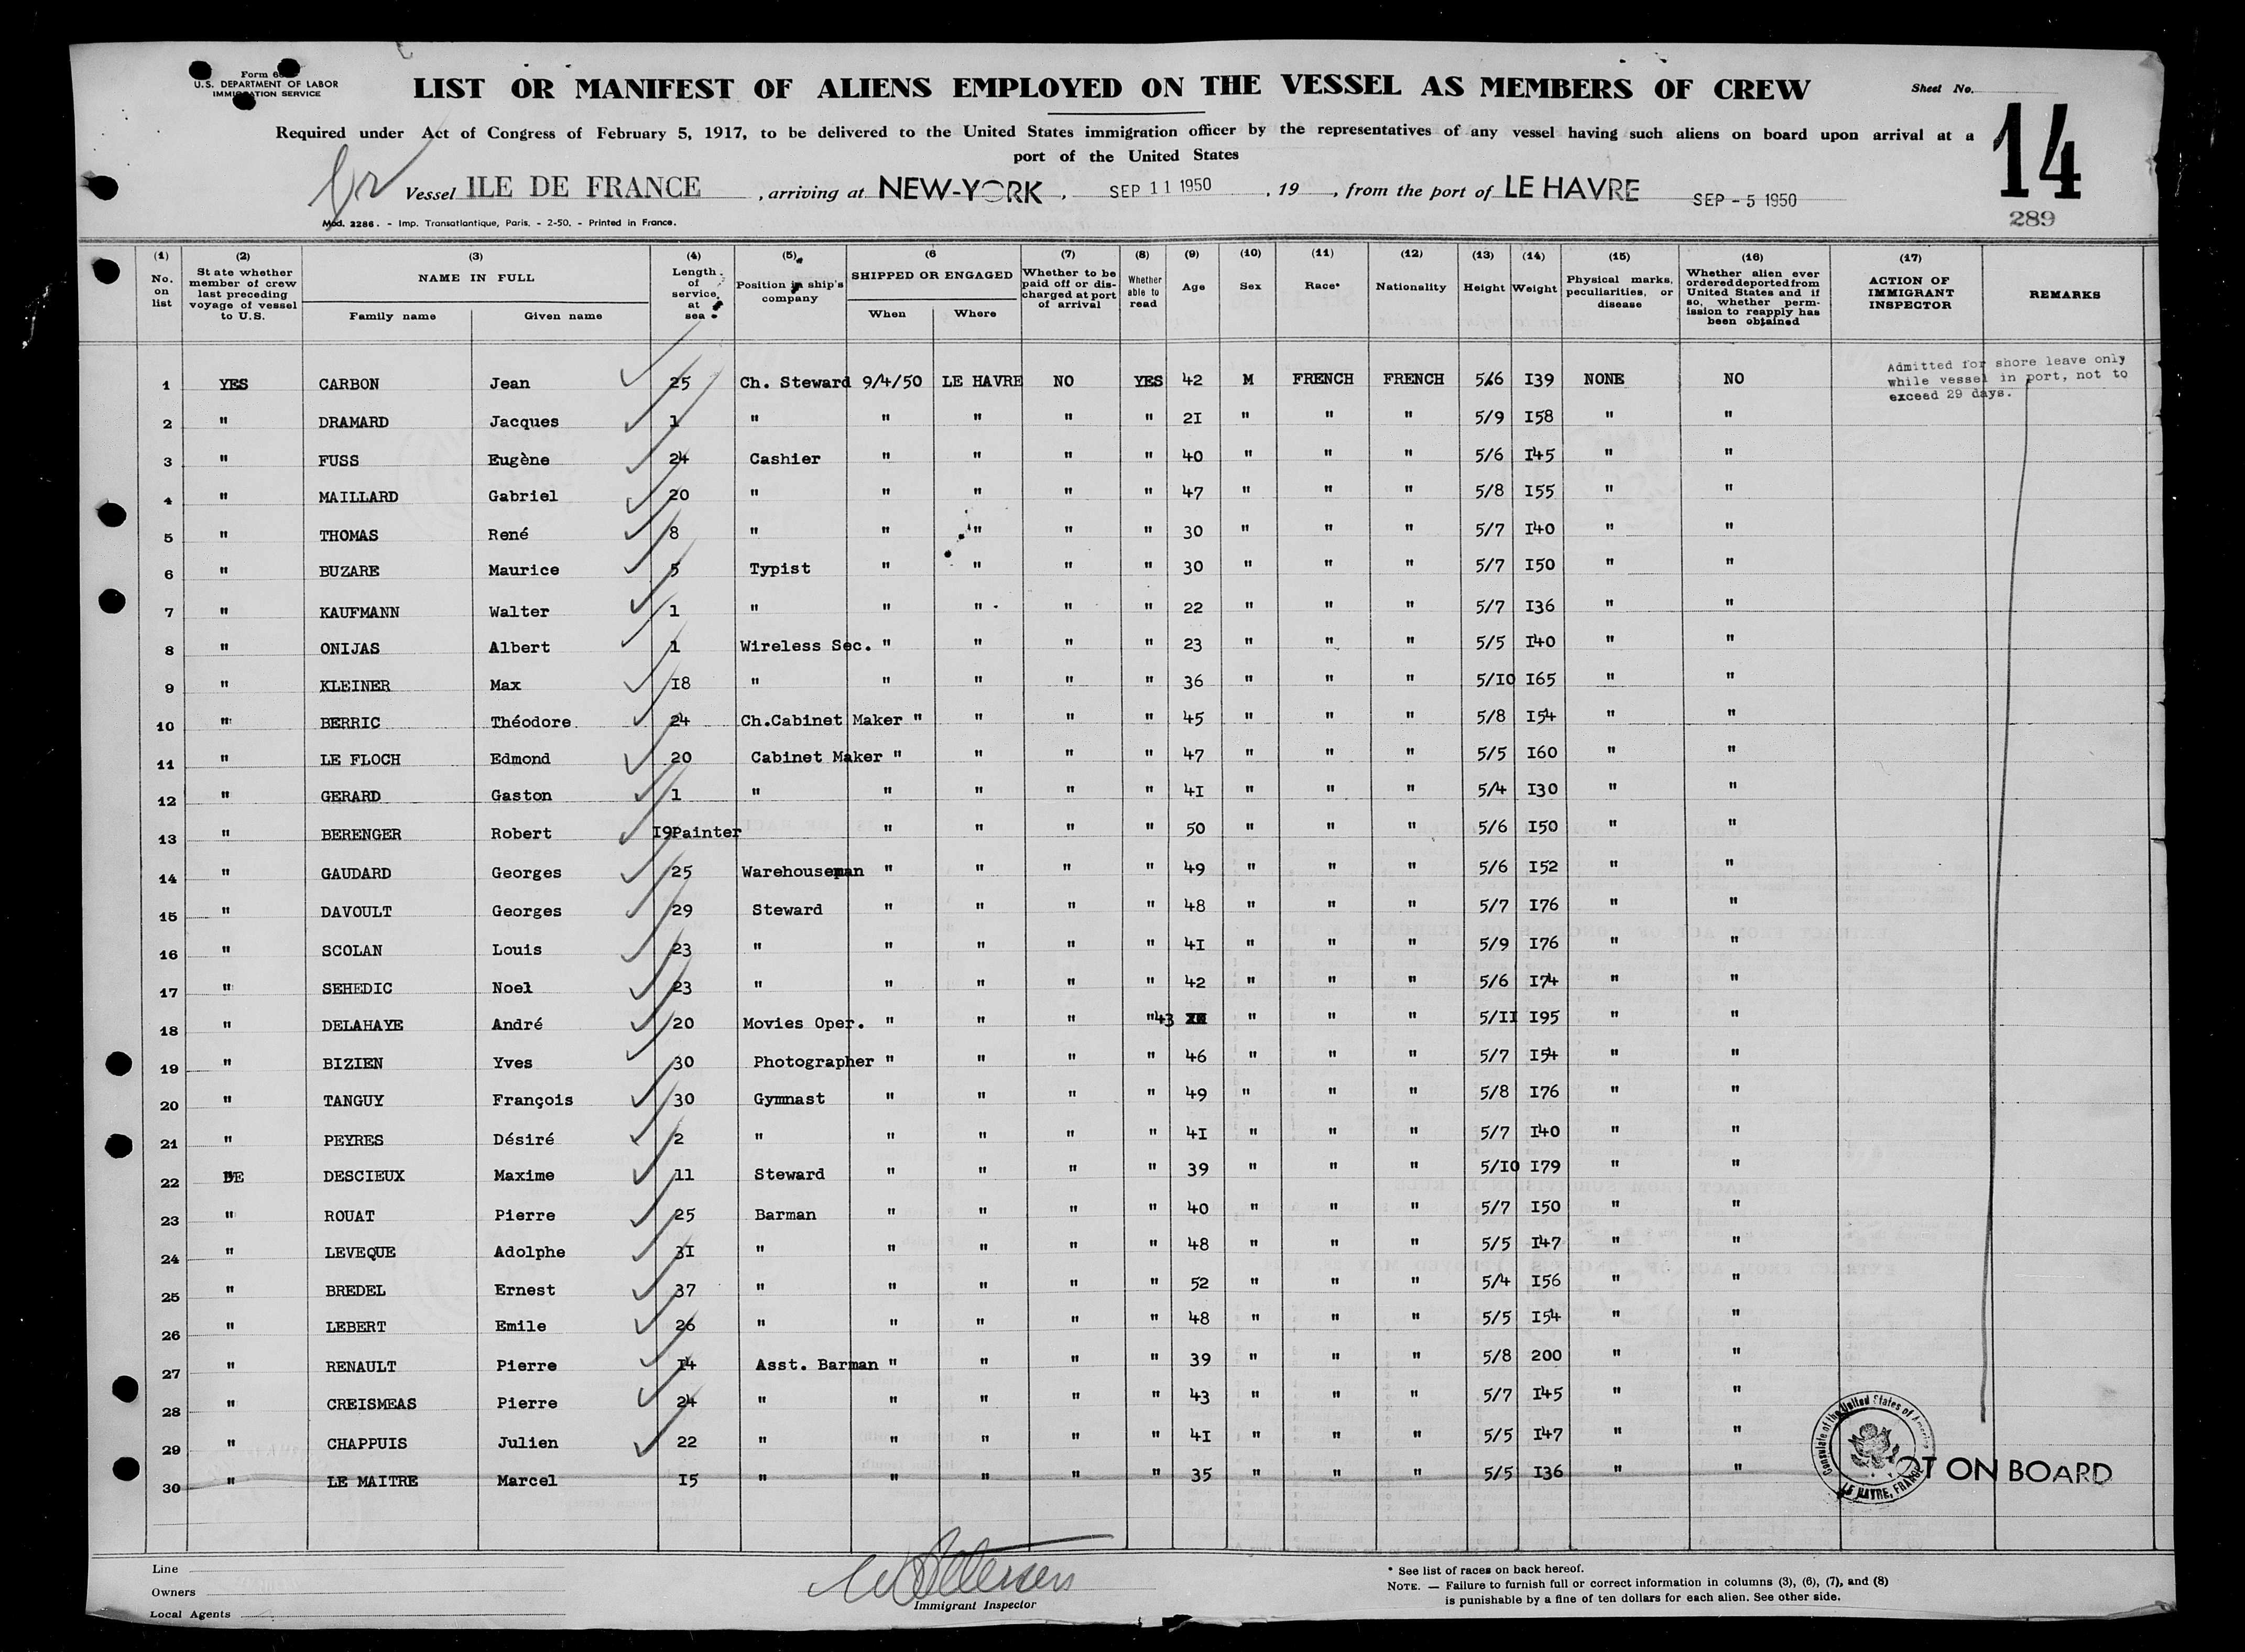 Form 6
U.S. DEPARTMENT OF LABOR
IMMIGRATION SERVICE
LIST OR MANIFEST OF ALIENS EMPLOYED ON THE VESSEL AS MEMBERS OF CREW
Sheet No.
14
289
Required under Act of Congress of February 5, 1917, to be delivered to the United States immigration officer by the representatives of any vessel having such aliens on board upon arrival at a
port of the United States
Vessel ILE DE FRANCE, arriving at NEW-YORK, SEP 11 1950, 19 , from the port of LE HAVRE SEP - 5 1950
Mod. 2286. - Imp. Transatlantique, Paris. - 2-50. - Printed in France.
(1) No. on list (2) State whether member of crew last preceding voyage of vessel to U.S. (3) NAME IN FULL Family name Given name (4) Length of service at sea (5) Position in ship's company (6 SHIPPED OR ENGAGED When Where (7) Whether to be paid off or discharged at port of arrival (8) Whether able to read (9) Age (10) Sex (11) Race* (12) Nationality (13) Height (14) Weight (15) Physical marks, peculiarities, or disease (16) Whether alien ever ordered deported from United States and if so, whether permission to reapply has been obtained (17) ACTION OF IMMIGRANT INSPECTOR REMARKS
Admitted for shore leave only
while vessel in port, not to
exceed 29 days.
1 YES CARBON Jean 25 Ch. Steward 9/4/50 LE HAVRE NO YES 42 M FRENCH FRENCH 5/6 I39 NONE NO
2 " DRAMARD Jacques 1 " " " " " 2I " " " 5/9 I58 " "
3 " FUSS Eugène 24 Cashier " " " " 40 " " " 5/6 I45 " "
4 " MAILLARD Gabriel 20 " " " " " 47 " " " 5/8 I55 " "
5 " THOMAS René 8 " " " " " 30 " " " 5/7 I40 " "
6 " BUZARE Maurice 5 Typist " " " " 30 " " " 5/7 I50 " "
7 " KAUFMANN Walter 1 " " " " " 22 " " " 5/7 I36 " "
8 " ONIJAS Albert 1 Wireless Sec. " " " " 23 " " " 5/5 I40 " "
9 " KLEINER Max I8 " " " " " 36 " " " 5/I0 I65 " "
10 " BERRIC Théodore 24 Ch.Cabinet Maker " " " " 45 " " " 5/8 I54 " "
11 " LE FLOCH Edmond 20 Cabinet Maker " " " " 47 " " " 5/5 I60 " "
12 " GERARD Gaston 1 " " " " " 4I " " " 5/4 I30 " "
13 " BERENGER Robert I9 Painter " " " " 50 " " " 5/6 I50 " "
14 " GAUDARD Georges 25 Warehouseman " " " " 49 " " " 5/6 I52 " "
15 " DAVOULT Georges 29 Steward " " " " 48 " " " 5/7 I76 " "
16 " SCOLAN Louis 23 " " " " " 4I " " " 5/9 I76 " "
17 " SEHEDIC Noel 23 " " " " " 42 " " " 5/6 I74 " "
18 " DELAHAYE André 20 Movies Oper. " " " " 43 " " " 5/II I95 " "
19 " BIZIEN Yves 30 Photographer " " " " 46 " " " 5/7 I54 " "
20 " TANGUY François 30 Gymnast " " " " 49 " " " 5/8 I76 " "
21 " PEYRES Désiré 2 " " " " " 4I " " " 5/7 I40 " "
22 DESCIEUX Maxime 11 Steward " " " " 39 " " " 5/I0 I79 " "
23 " ROUAT Pierre 25 Barman " " " " 40 " " " 5/7 I50 " "
24 " LEVEQUE Adolphe 3I " " " " " 48 " " " 5/5 I47 " "
25 " BREDEL Ernest 37 " " " " " 52 " " " 5/4 I56 " "
26 " LEBERT Emile 26 " " " " " 48 " " " 5/5 I54 " "
27 " RENAULT Pierre I4 Asst. Barman " " " " 39 " " " 5/8 200 " "
28 " CREISMEAS Pierre 24 " " " " " 43 " " " 5/7 I45 " "
29 " CHAPPUIS Julien 22 " " " " " 4I " " " 5/5 I47 " "
30 " LE MAITRE Marcel I5 " " " " " 35 " " " 5/5 I36 " " OT ON BOARD
Consulate of the United States of America
LE HAVRE, FRANCE
Line
Owners
Local Agents
Immigrant Inspector
* See list of races on back hereof.
NOTE. — Failure to furnish full or correct information in columns (3), (6), (7), and (8)
is punishable by a fine of ten dollars for each alien. See other side.